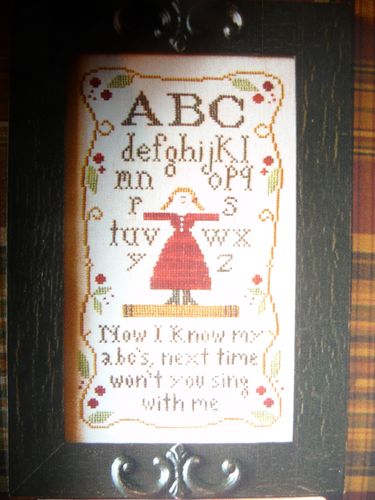 ABC
defghijkl
mn opq
r s
tuv wx
y z
Now I know my
a.b.c's, next time
won't you sing
with me